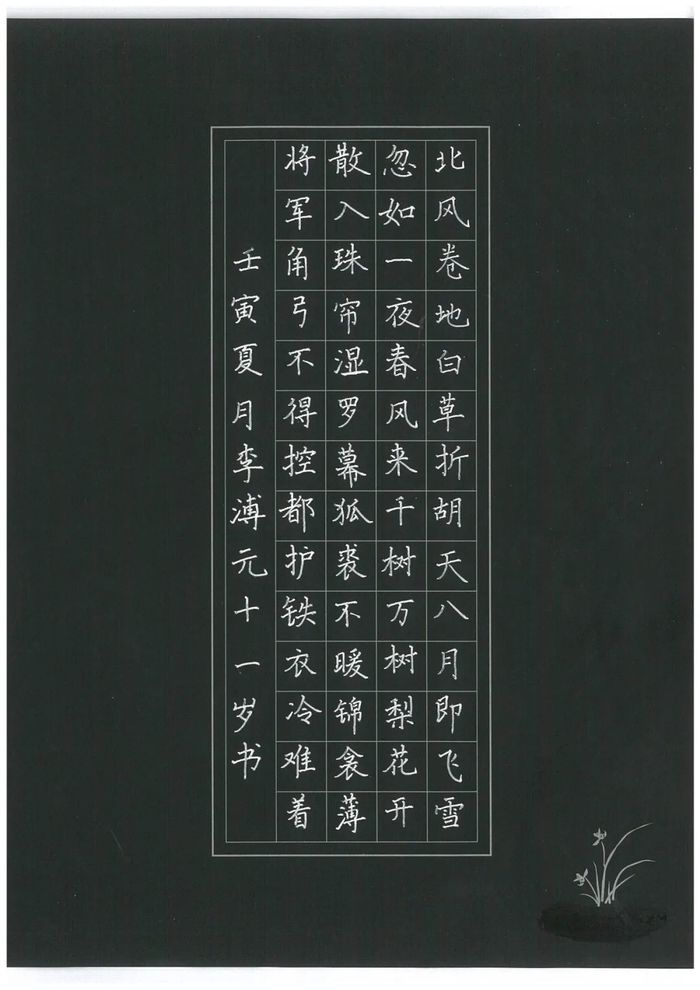 北风卷地白草折胡天八月即飞雪
忽如一夜春风来千树万树梨花开
散入珠帘湿罗幕狐裘不暖锦衾薄
将军角弓不得控都护铁衣冷难着
壬寅夏月李溥元十一岁书